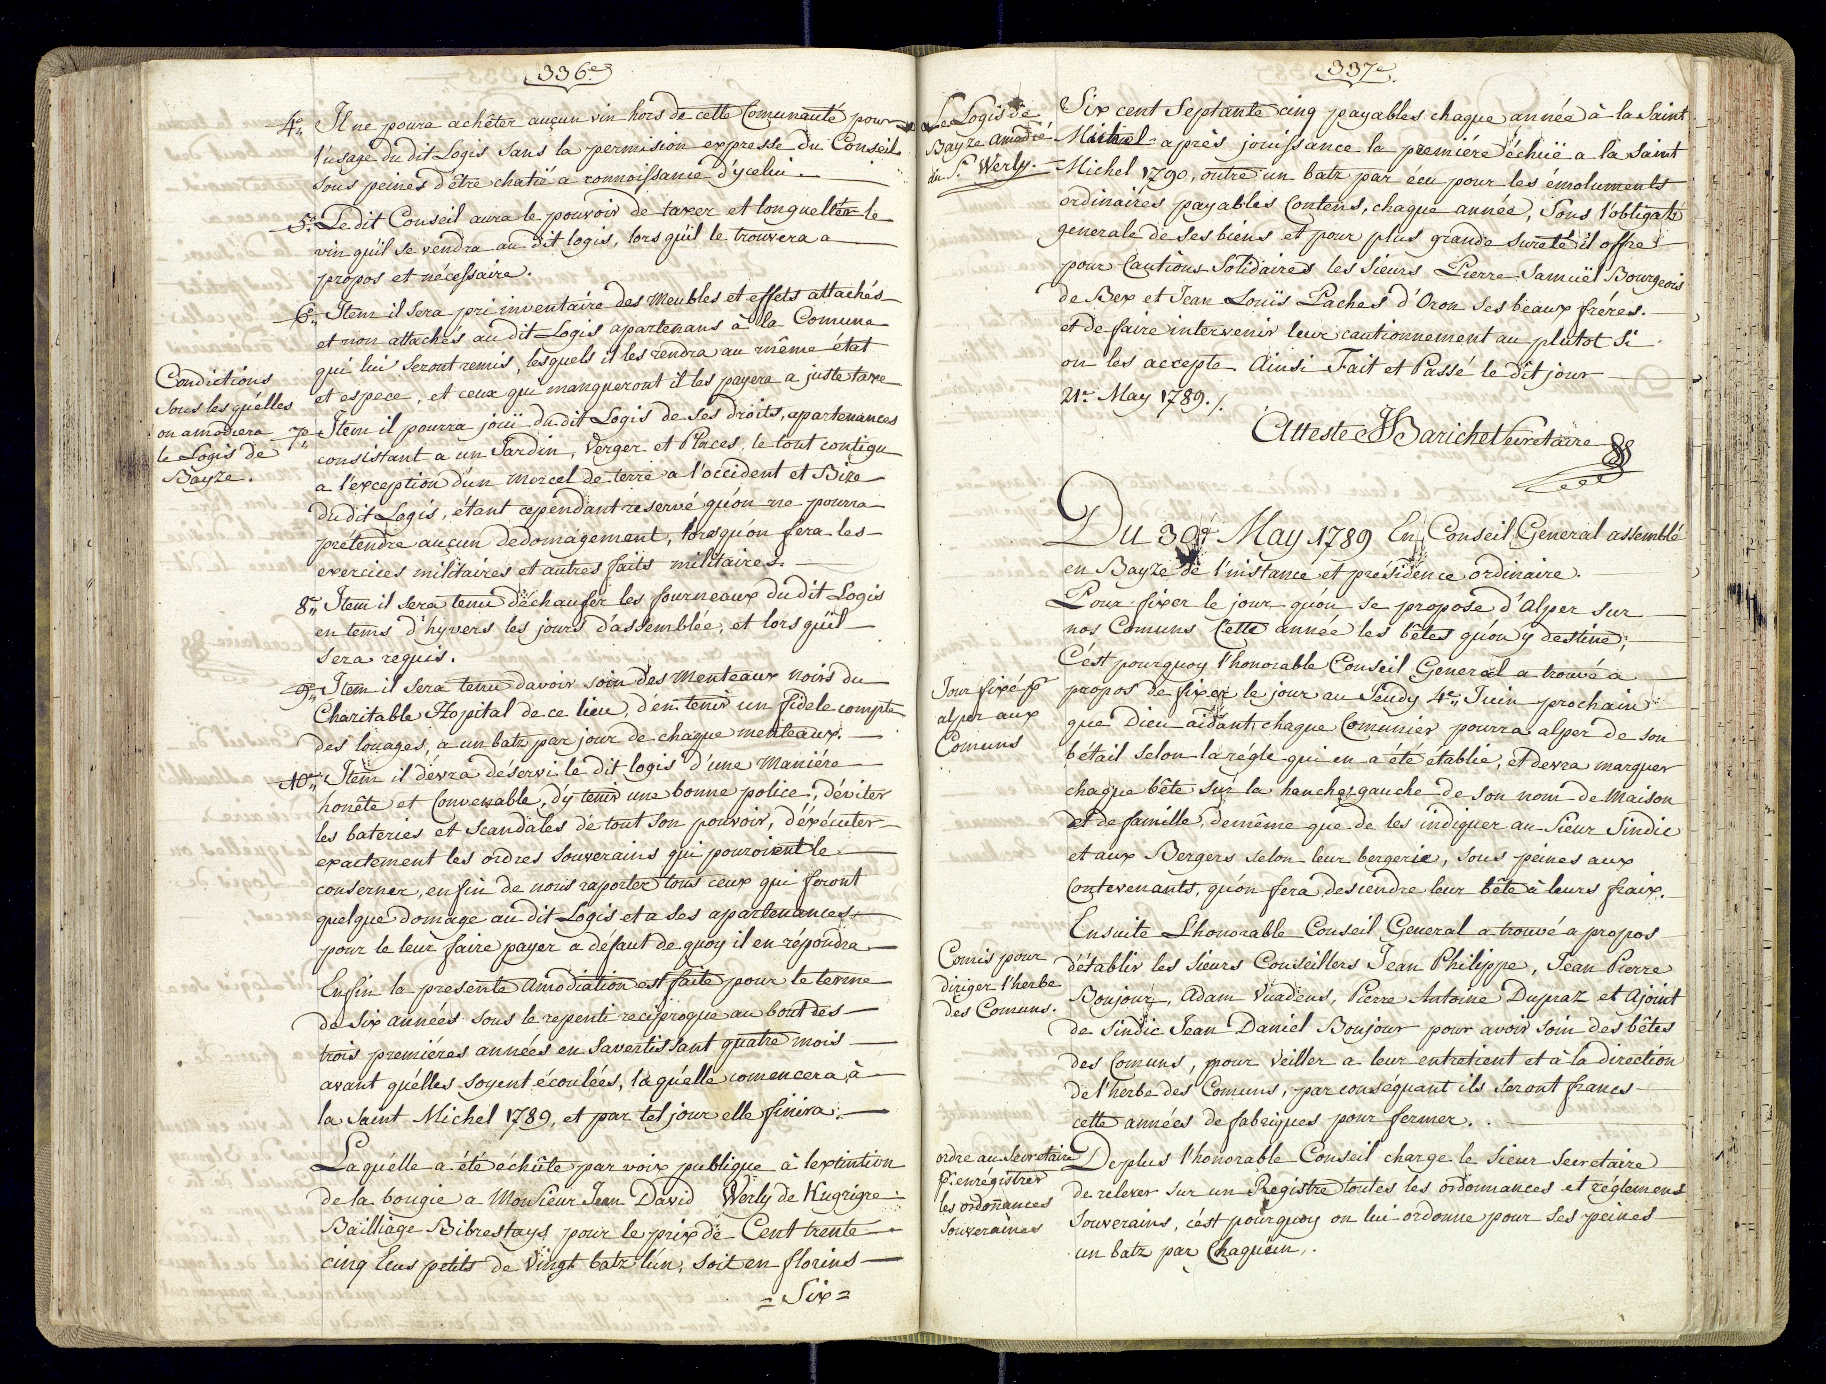 336.e
4.e Il ne poura achêter auçun vin hors de cette Comunauté pour
l'usage du dit Logis sans la permision expresse du Conseil
sous peines d'être chatié a connoissance d'ycelui.
5.e Le dit Conseil aura le pouvoir de taxer et longuelter le
vin qu'il se vendra au dit logis, lors qu'il le trouvera a
propos et nécessaire.
6.e Item il sera pri inventaire des Meubles et effets attachés
et non attachés au dit Logis apartenans à la Comune
qui lui seront remis, lesquels il les rendra au même état
et espece, et ceux qui manqueront il les payera a juste taxe
Condictions
sous les qu'elles
on amodiera
le Logis de
Bayze.
7.e Item il pourra joüi du dit Logis de ses droits, apartenances
consistant a un Jardin, Verger et Places, le tout contigu
a l'exception d'un morcel de terre a l'occident et Bize
du dit Logis, étant cependant reservé qu'on ne pourra
prétendre auçun dedomágement, lorsqu'on fera les
exercices militaires et autres faits militaires.
8.e Item il sera tenu d'échaufer les fourneaux du dit Logis
en tems d'hyvers les jours d'assemblée, et lors qu'il
sera requis.
9.e Item il sera tenu d'avoir soin des Menteaux noirs du
Charitable Hopital de ce lieu, d'en tenir un fidele compte
des louages, a un batz par jour de chaque menteaux.
10.e Item il dévra déservi le dit logis d'une Maniére
honête et Convenable, d'y tenir une bonne police, d'éviter
les bateries et scandales de tout son pouvoir, d'éxécuter
exactement les ordres Souverains qui pouroient le
conserner, enfin de nous raporter tous ceux qui feront
quelque domage au dit Logis et a ses apartenances,
pour le leur faire payer a défaut de quoy il en répondra
Enfin la presente Amodiation est faite pour le terme
de six années sous le repenti reciproque au bout des
trois premiéres années en s'avertissant quatre mois
avant qu'elles soyent écoulées, laqu'elle comencera à
la Saint Michel 1789, et par tel jour elle finira.
Laqu'elle a été échûte par voix publique à l'extintion
de la bougie a Monsieur Jean David Werly de
Bailliage Bibrestays pour le prix de Cent trente
cinq Ecus petits de Vingt batz l'un, soit en florins
= Six =
337.e
Le Logis de
Bayze amodié
au S.r Werly.
Six cent Septante cinq payables chaque année à la Saint
Michel après jouissance la premiére échüe a la Saint
Michel 1790, outre un batz par écu pour les émoluments
ordinaires payables Contens, chaque année, Sous l'obligat.
generale de ses biens et pour plus grande sureté il offre
pour Cautions Solidaires les Sieurs Pierre Samuël Bourgeois
de Bex et Jean Louïs Paches d'Oron ses beaux fréres.
et de faire intervenir leur cautionnement au plutot Si
on les accepte Ainsi Fait et Passé le dit jour
21.e May 1789./.
Atteste JS Barichet Secretaire
Du 30.e May 1789 En Conseil General assemblé
en Bayze de l'instance et présidence ordinaire.
Pour fixer le jour qu'on se propose d'Alper sur
nos Comuns Cette année les bêtes qu'on y destine,
C'est pourquoy l'honorable Conseil General a trouvé a
Jour fixé p.r
alper aux
Comuns
propos de fixer le jour au Jeudy 4.e Juin prochain
que Dieu aidant chaque Comunier pourra alper de son
bétail selon la régle qui en a été établie, et devra marquer
chaque bête sur la hanche gauche de son nom de Maison
et de famille, demême que de les indiquer au Sieur Sindic
et aux Bergers selon leur bergerie, sous peines aux
Contevenants, qu'on fera desçendre leur bête à leurs fraix.
Comis pour
diriger l'herbe
des Comuns.
Ensuite L'honorable Conseil General a trouvé a propos
d'établir les Sieurs Conseillers Jean Philippe, Jean Pierre
Bonjour, Adam Vuadens, Pierre Antoine Dupraz et Ajoint
de Sindic Jean Daniel Bonjour pour avoir soin des bêtes
des Comuns, pour veiller a leur entretient et à la direction
de l'herbe des Comuns, par conséquant ils seront francs
cette années de fabriques pour fermer.
ordre au Secretaire
p.r enrégistrer
les ordonnances
Souveraines
Deplus l'honorable Conseil charge le Sieur Secretaire
de relever sur un Registre toutes les ordonnances et réglemens
Souverains, c'est pourquoy on lui ordonne pour ses peines
un batz par Chaqu'un.